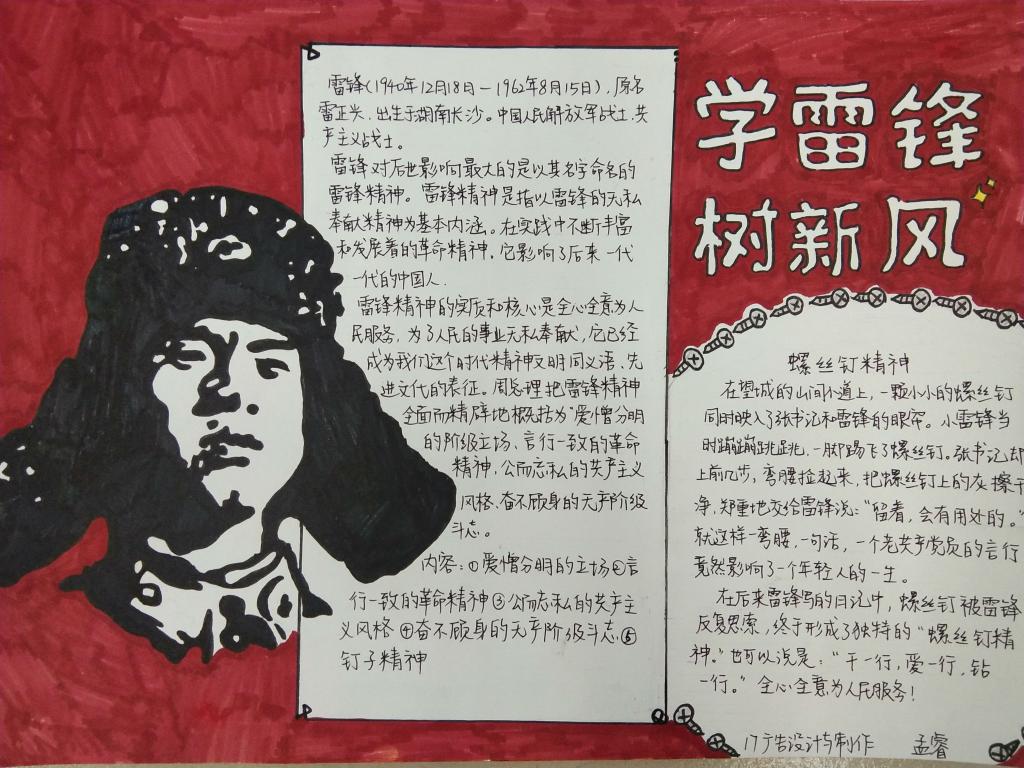 学雷锋
树新风
雷锋(1940年12月18日—1962年8月15日),原名
雷正兴,出生于湖南长沙。中国人民解放军战士,共
产主义战士。
雷锋对后世影响最大的是以其名字命名的
雷锋精神。雷锋精神是指以雷锋的无私
奉献精神为基本内涵。在实践中不断丰富
和发展着的革命精神,它影响了后来一代
一代的中国人.
雷锋精神的实质和核心是全心全意为人
民服务,为了人民的事业无私奉献,它已经
成为我们这个时代精神文明同义语、先
进文化的表征。周总理把雷锋精神
全面而精辟地概括为"爱憎分明
的阶级立场、言行一致的革命
精神、公而忘私的共产主义
风格、奋不顾身的无产阶级
斗志。
内容:①爱憎分明的立场②言
行一致的革命精神③公而忘私的共产主
义风格④奋不顾身的无产阶级斗志⑤
钉子精神
螺丝钉精神
在望城的山间小道上,一颗小小的螺丝钉
同时映入了张书记和雷锋的眼帘。小雷锋当
时蹦蹦跳跳,一脚踢飞了螺丝钉。张书记却
上前几步,弯腰捡起来,把螺丝钉上的灰擦干
净,郑重地交给雷锋说:"留着,会有用处的。"
就这样一弯腰,一句话,一个老共产党员的言行
竟然影响了一个年轻人的一生。
在后来雷锋写的日记中,螺丝钉被雷锋
反复思索,终于形成了独特的"螺丝钉精
神。"也可以说是:"干一行,爱一行,钻
一行。"全心全意为人民服务!
17广告设计与制作 孟睿